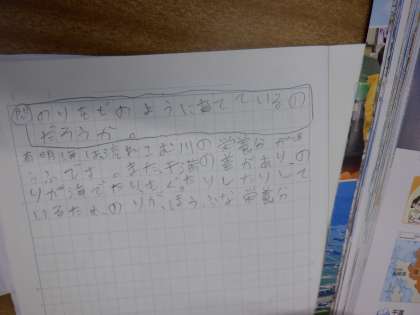 問 のりをどのように育てているの
だろうか。
有明海は流れこむ川の栄養分がほ
うふです。また、干満の差があり、の
りが海でたりもぐったりして
いるため、のりが、ほうふな栄養分